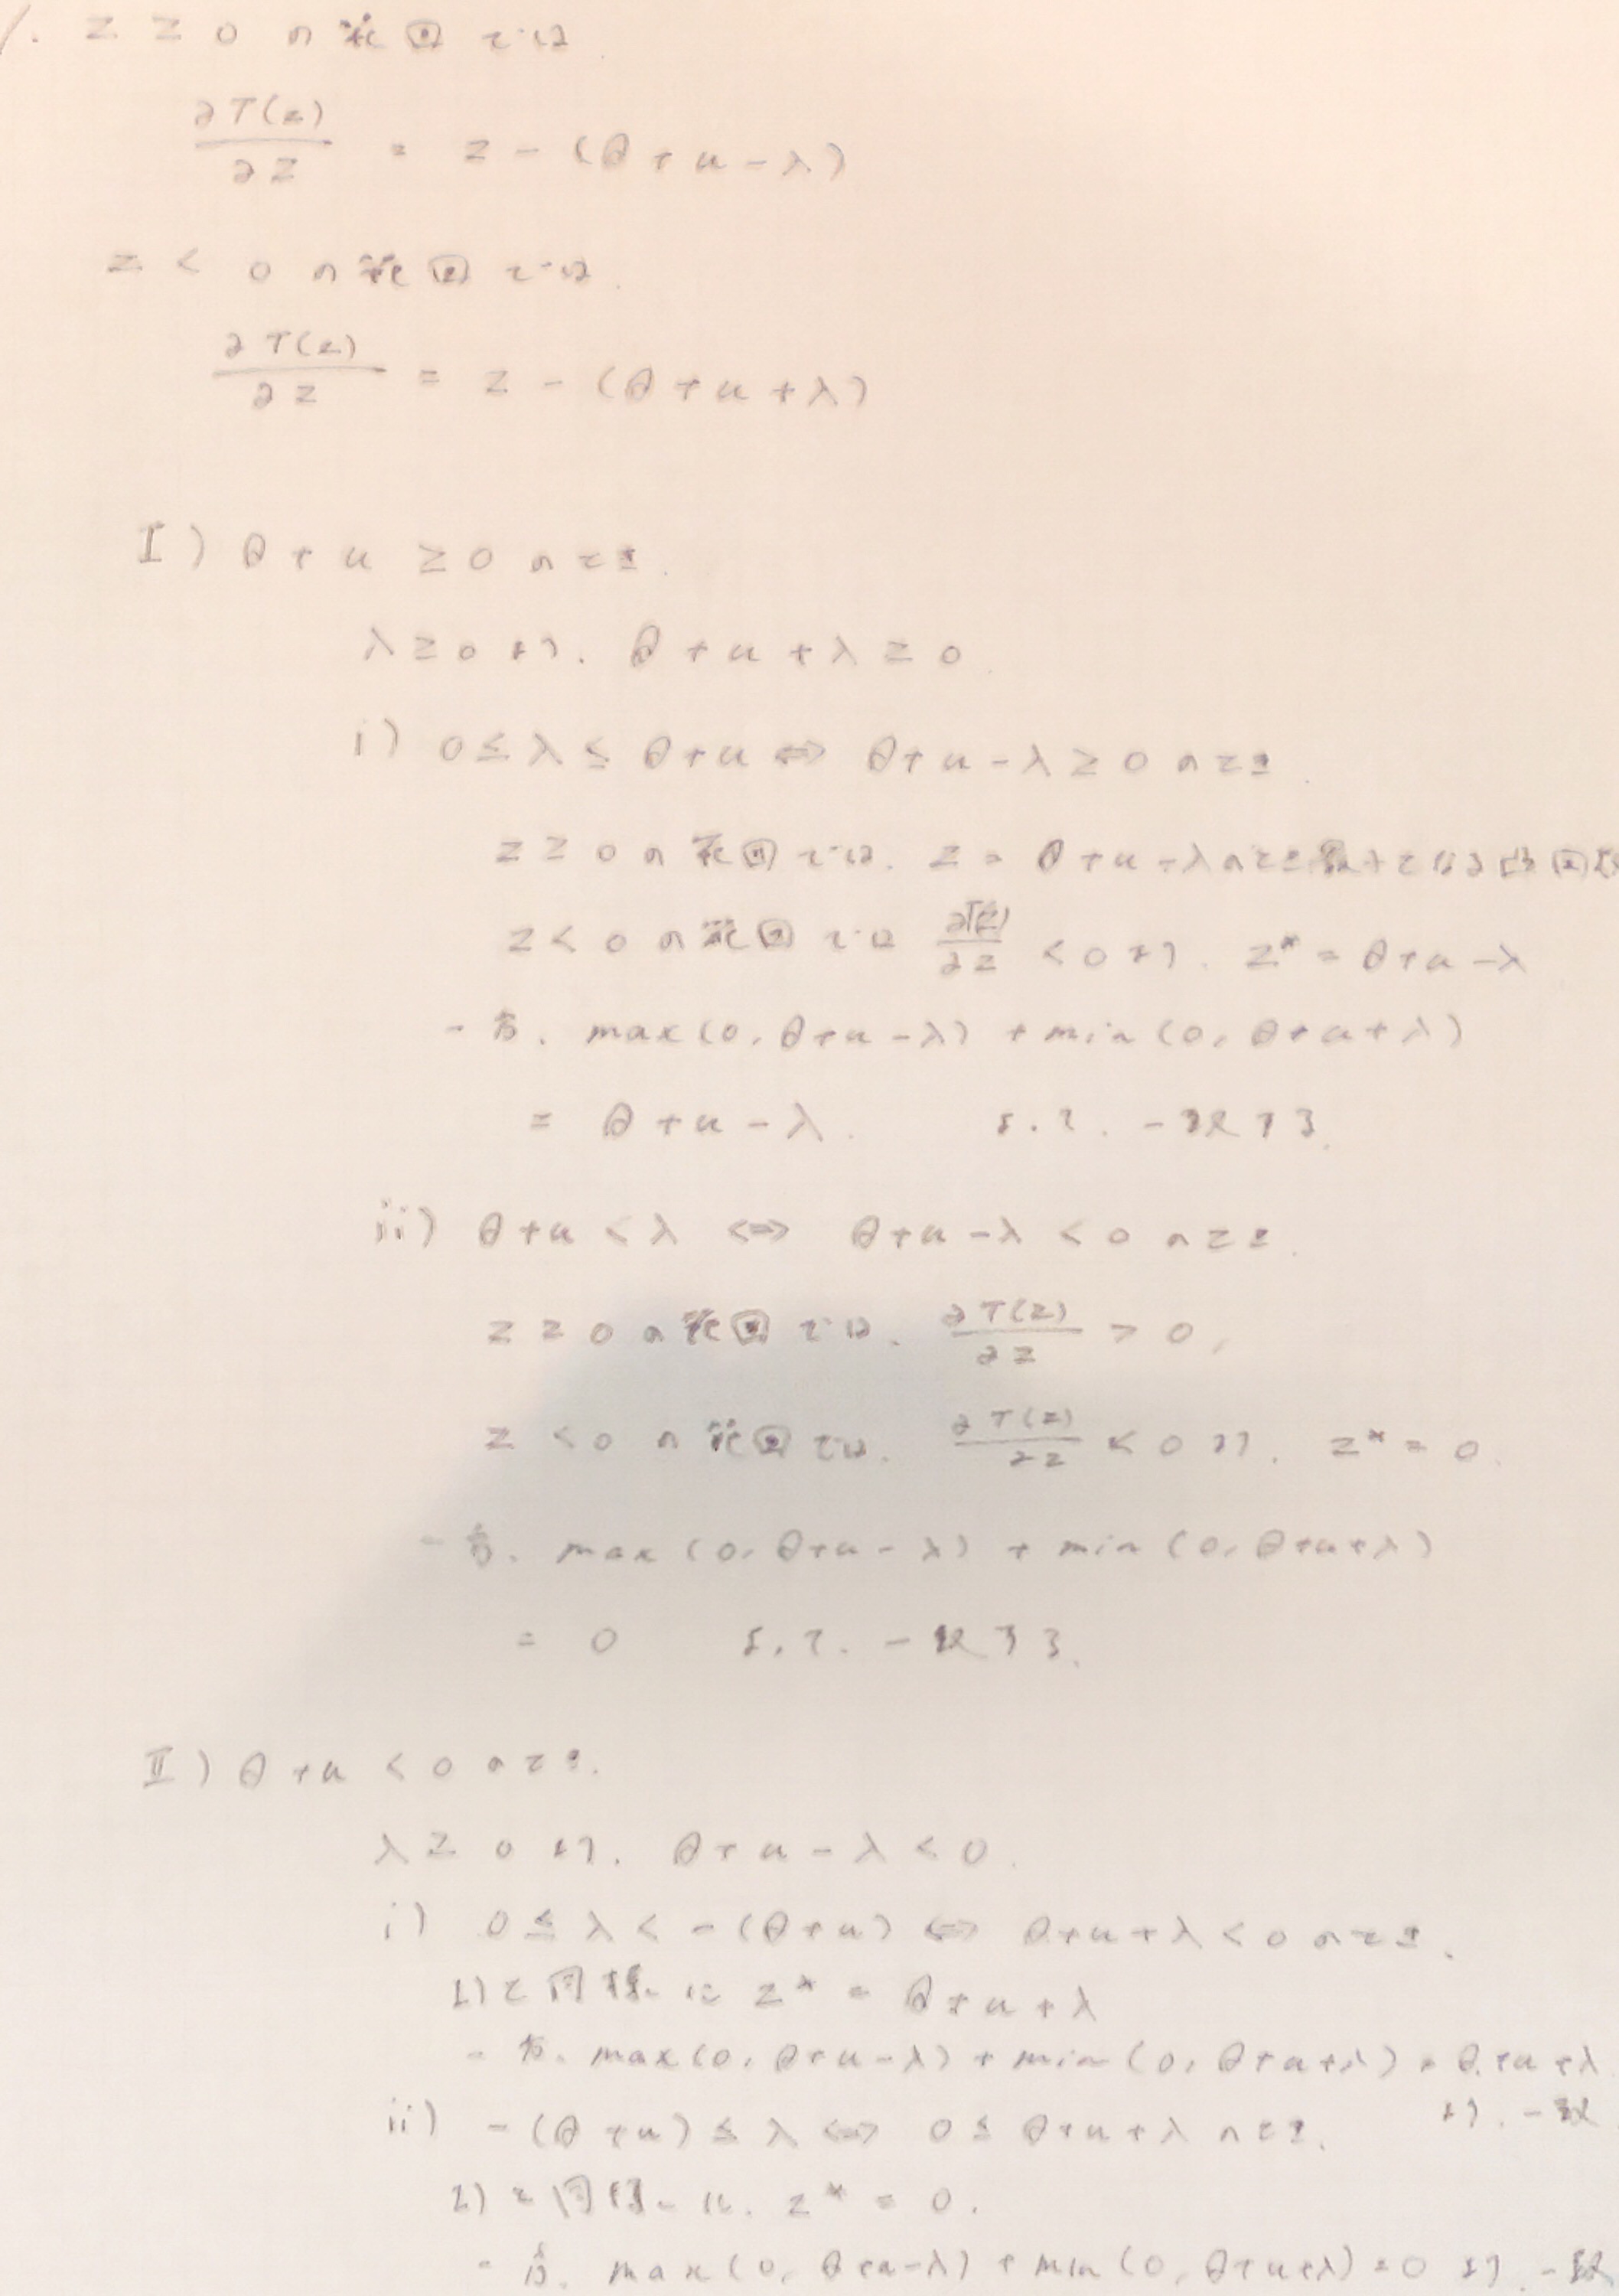 1. z ≥ 0 の範囲では
∂T(z)/∂z = z - (θ + u - λ)
z < 0 の範囲では.
∂T(z)/∂z = z - (θ + u + λ)
I) θ + u ≥ 0 のとき.
λ ≥ 0 より. θ + u + λ ≥ 0
i) 0 ≤ λ ≤ θ+u ⇔ θ+u-λ ≥ 0 のとき.
z ≥ 0 の範囲では. z = θ+u-λ のとき となる
z < 0 の範囲では ∂T(z)/∂z < 0 より. z* = θ+u-λ
一方. max(0, θ+u-λ) + min(0, θ+u+λ)
= θ+u-λ. よって. 一致する.
ii) θ+u < λ ⇔ θ+u-λ < 0 のとき.
z ≥ 0 の範囲では. ∂T(z)/∂z > 0,
z < 0 の範囲では. ∂T(z)/∂z < 0 より. z* = 0.
一方. max(0, θ+u-λ) + min(0, θ+u+λ)
= 0 よって. 一致する.
II) θ+u < 0 のとき.
λ ≥ 0 より. θ+u-λ < 0.
i) 0 ≤ λ < -(θ+u) ⇔ θ+u+λ < 0 のとき.
と同様に z* = θ+u+λ
一方. max(0, θ+u-λ) + min(0, θ+u+λ) = θ+u+λ
より. 一致
ii) -(θ+u) ≤ λ ⇔ 0 ≤ θ+u+λ のとき.
と同様に. z* = 0.
一方. max(0, θ+u-λ) + min(0, θ+u+λ) = 0 より. 一致